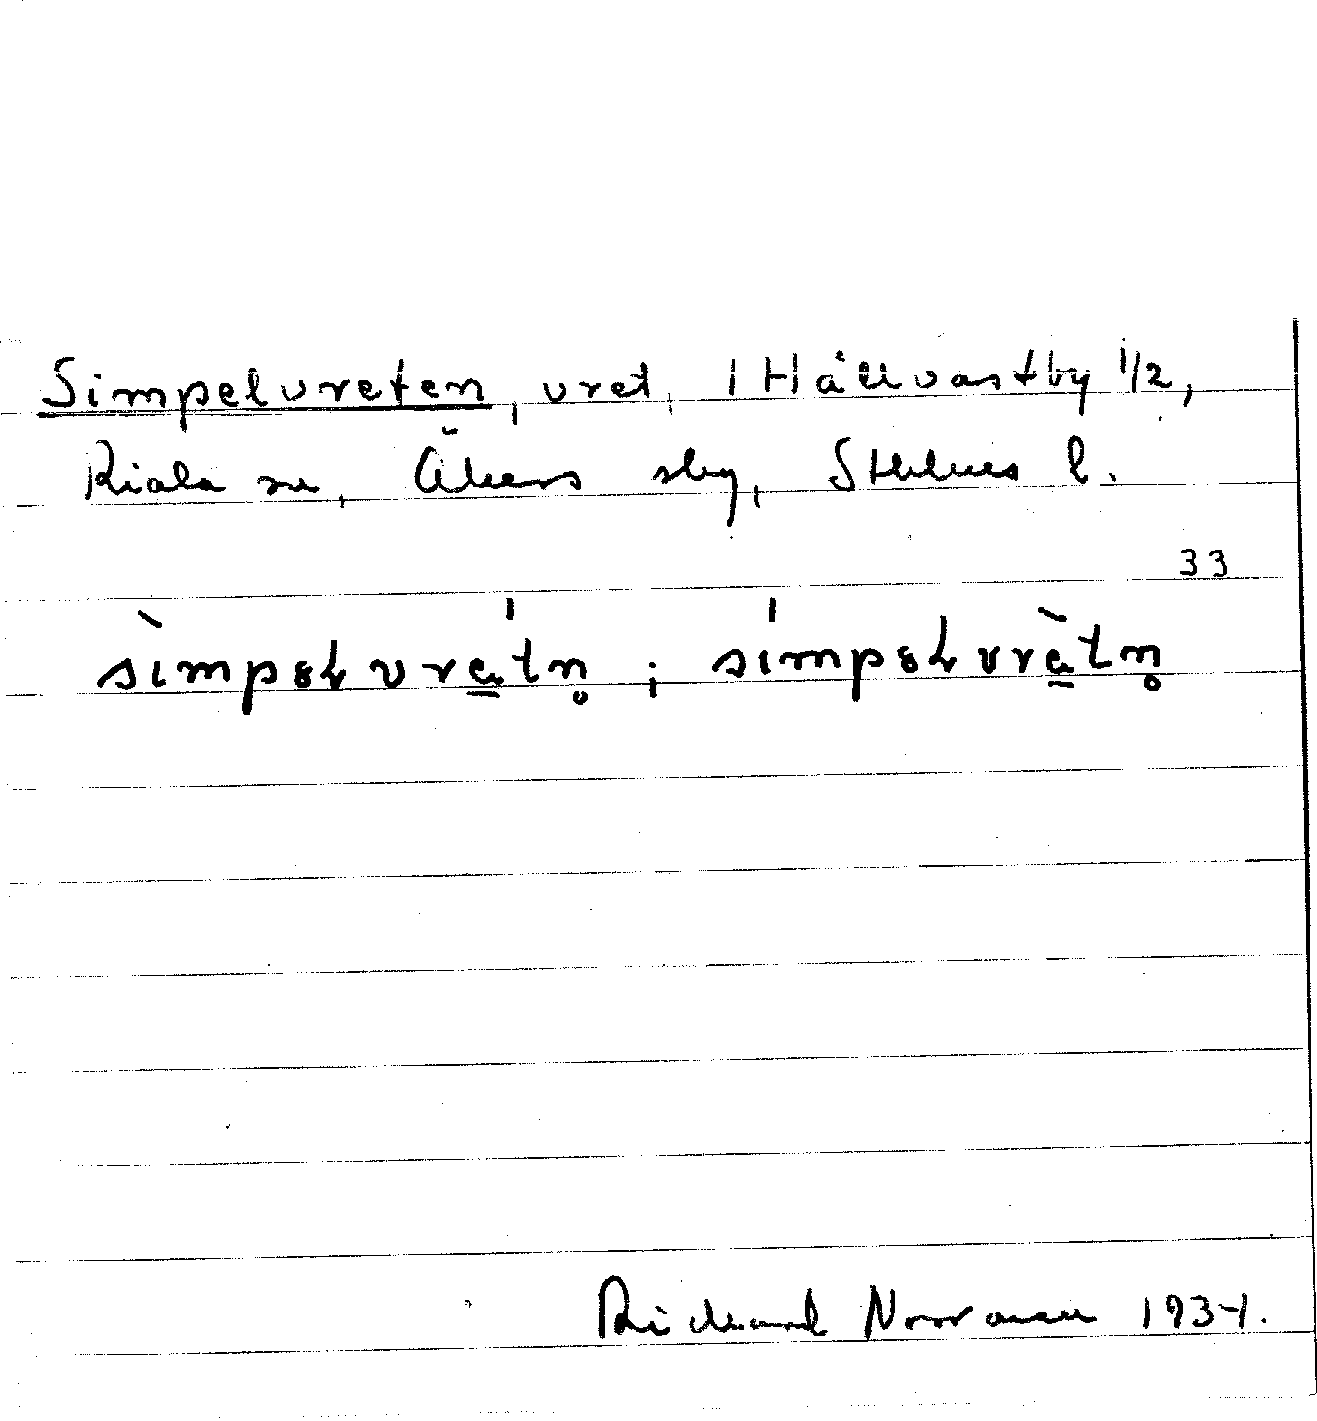 Simpelvreten, vret, i Hållvastby 1/2,
Riala sn, Åkers sbg, Sthlms l.
33
sìmpəɫvrat́n̥ ; símpəɫvràtn̥
Rickard Norrman 1934.